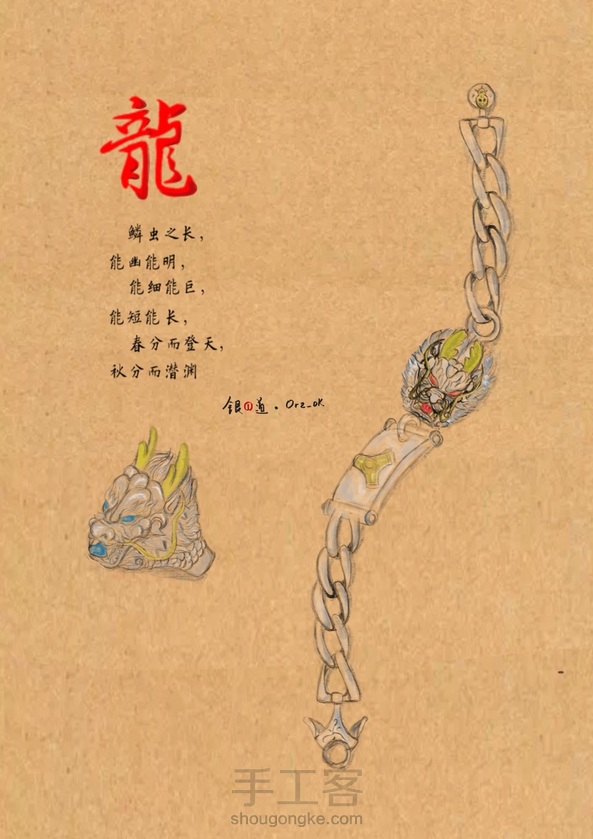 龍
鳞虫之长，
能幽能明，
能细能巨，
能短能长，
春分而登天，
秋分而潜渊
银①道．Orz_ok.
手工客
shougongke.com